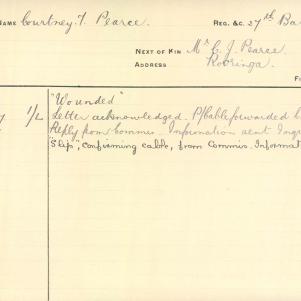 NAME Courtney. F. Pearce. REG. &C. 27th Ba
NEXT OF KIN Mr C. J. Pearce.
ADDRESS Rooringa.
F
"Wounded"
1/2 Letter acknowledged. P/Cable forwarded
Reply from Commis. Information sent
"Slip", confirming cable, from Commis. Informat